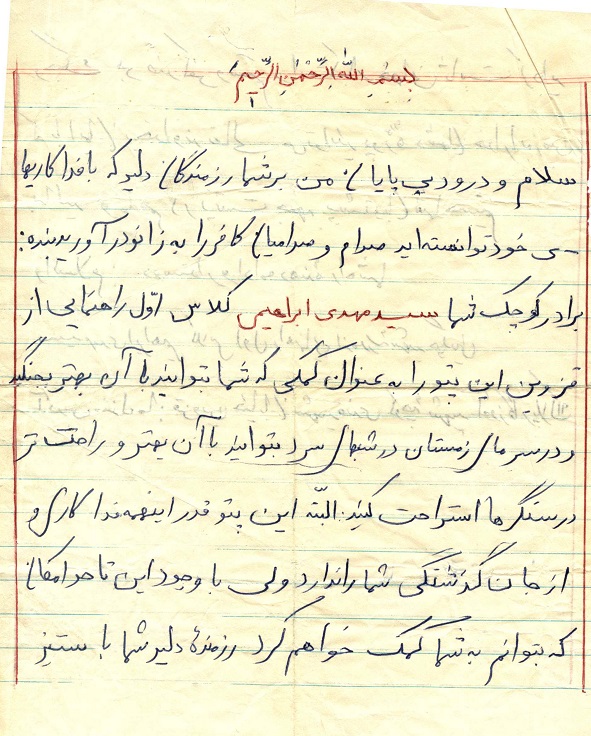 بسم الله الرحمن الرحیم
سلام و درود بی پایان من بر شما رزمندگان دلیر که با فدا کاریها
ـی خود توانسته اید صدام و صدامیان کافر را به زانو در آورید بنده:
برادر کوچک شما سید مهدی ابراهیمی کلاس اوّل راهنمایی از
قزوین این پتو را به عنوان کمکی که شما بتوانید با آن بهتر بجنگید
و در سرمای زمستان در شبهای سرد بتوانید با آن بهتر و راحت تر
در سنگرها استراحت کنید. البتّه این پتو قدر اینهمه فدا کاری و
از جان گذشتگی شما را ندارد ولی با وجود این تا حد امکان
که بتوانم به شما کمک خواهم کرد رزمندۀ دلیر شما با ستیز